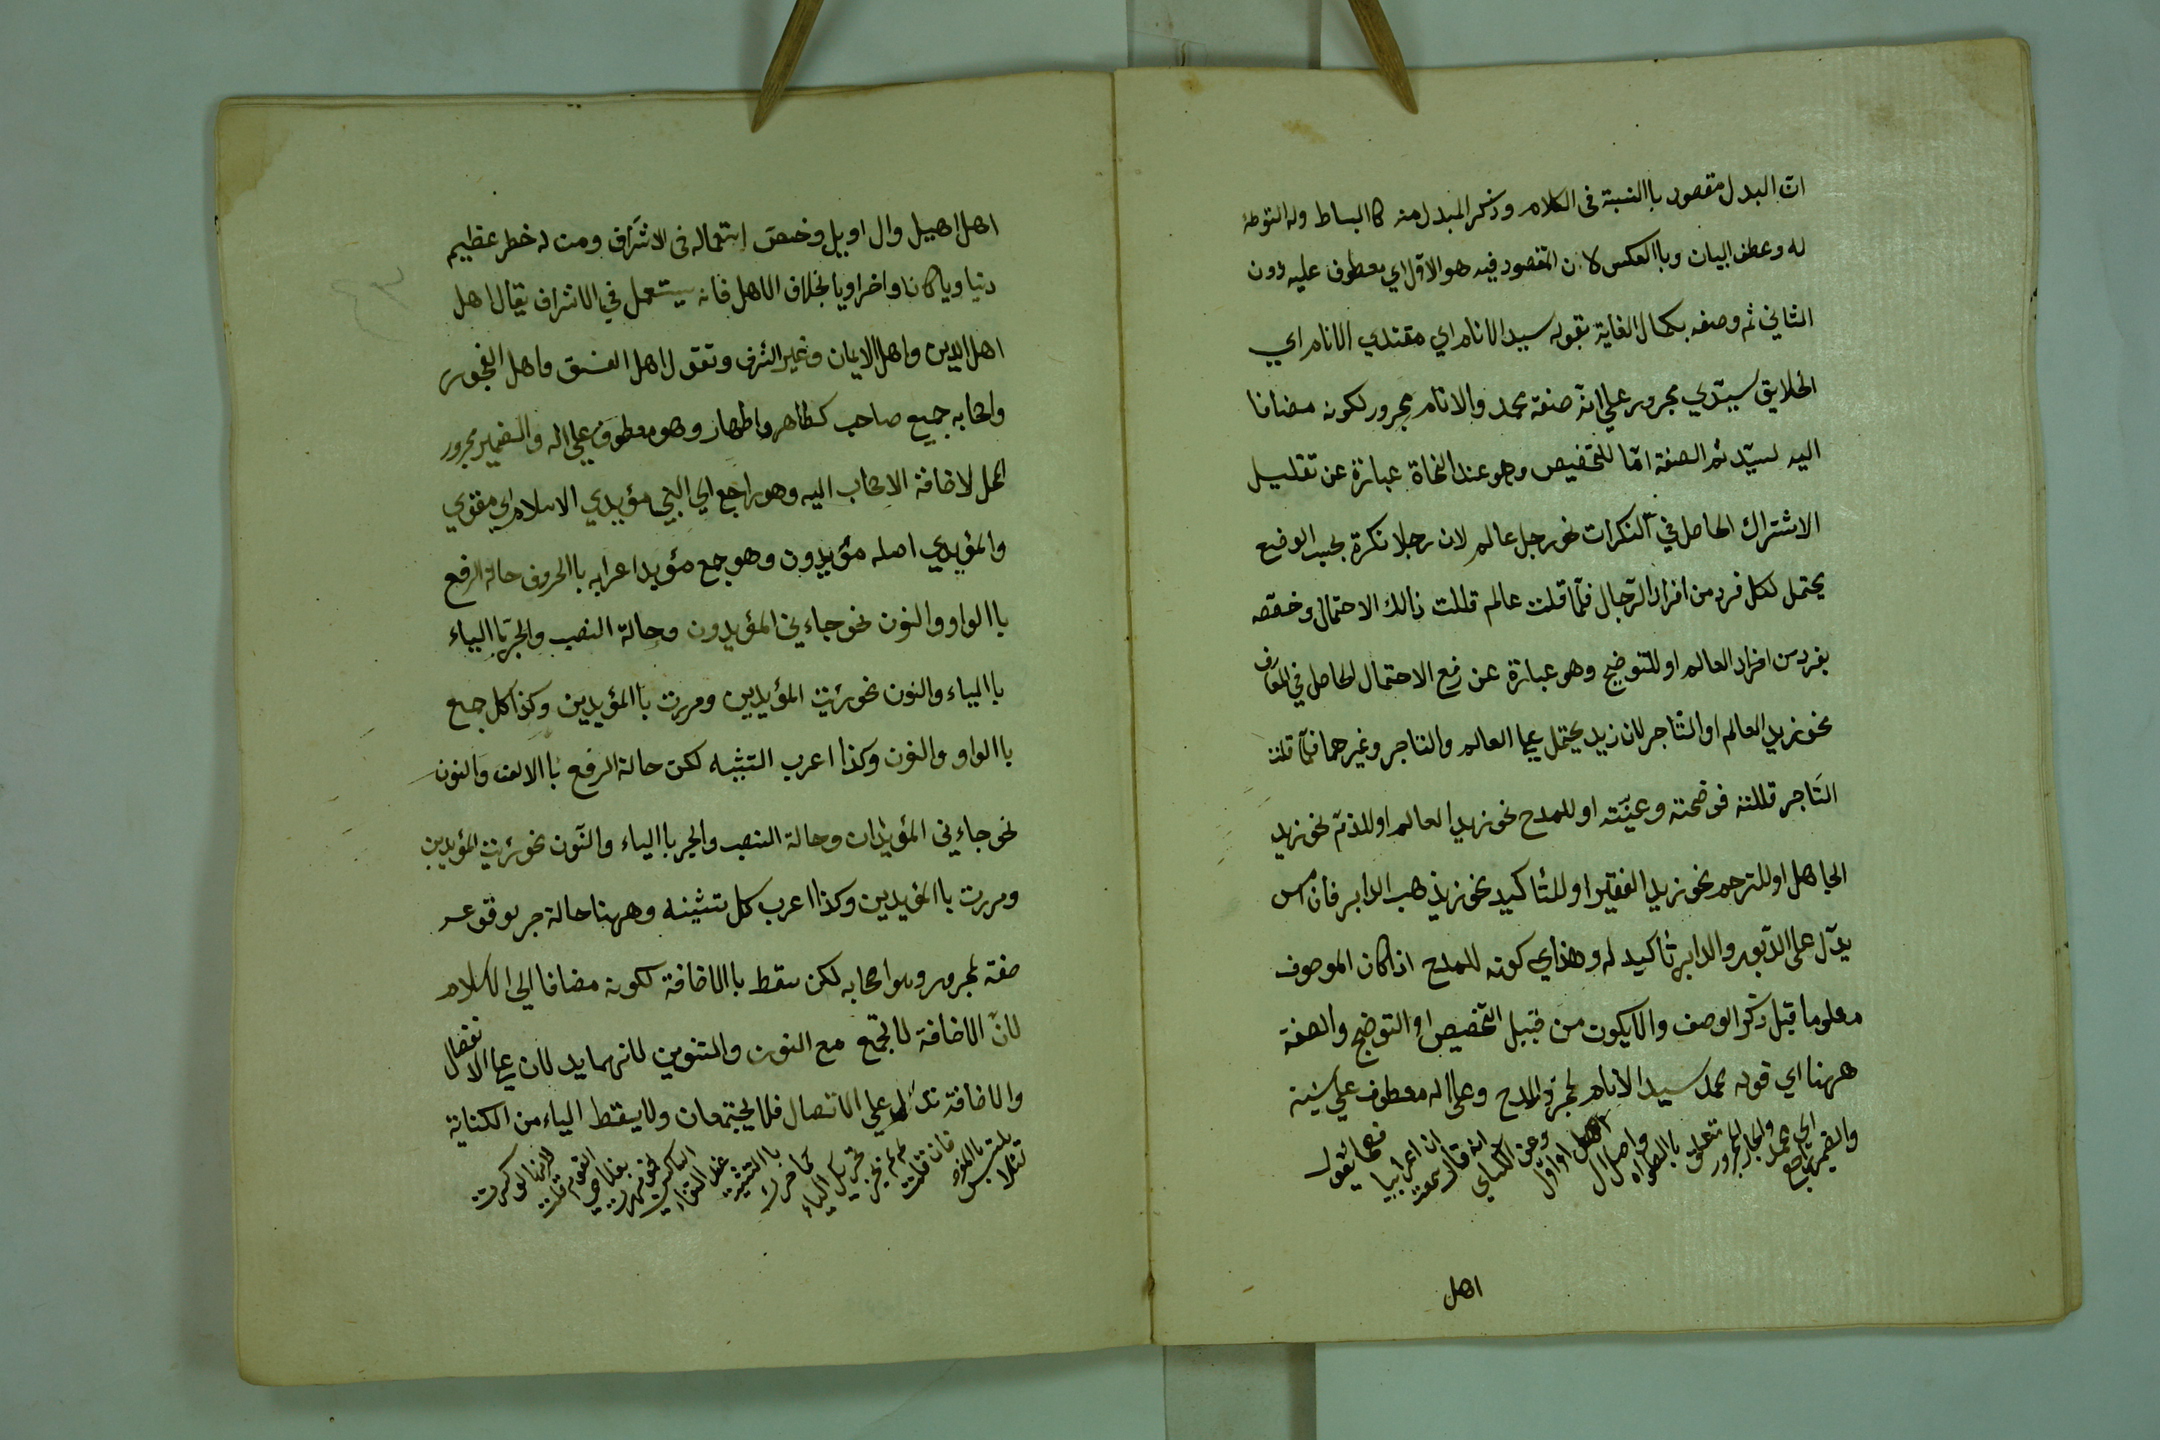 ان البدل مقصود باالنسبة فى الكلام وذكر المبدل منه كاالبساط وله التوطئة
له وعطف البيان وباالعكس لان المقصود فيه هو الاول اي معطوف عليه دون
الثاني ثم وصفه بكمال الغاية بقوله سيد الانام اي مقتدي الانام اي
الخلايق سيدي مجرور علي انه صفة محمد والانام مجرور لكونه مضافا
اليه لسيد ثم الصفة امّا للتخصيص وهو عند النحاة عبارة عن تقليل
الاشتراك الحاصل في النكرات نحو رجل عالم لان رجلا نكرة بحسب الوضع
يحتمل لكل فرد من افراد الرّجال فلمّا قلت عالم قللت ذالك الاحتمال وخصّصته
بفرد من افراد العالم او للتوضيح وهو عبارة عن رفع الاحتمال الحاصل في المعارف
نحو زيد العالم او التّاجر لان زيد يحتمل علي العالم والتاجر وغيرهما فلمّا قلت
التَاجر قللته فوضحته وعيّنته او للمدح نحو زيد العالم او للذمّ نحو زيد
الجاهل او للترحم نحو زيد الفقير او للتاكيد نحو زيد ذهب الدابر فان امس
يدّل على الدّبور والدابر تاكيد له وهذا اي كونه للمدح اذا كان الموصوف
معلوما قبل ذكر الوصف والا يكون من قبيل التخصيص او التوضيح والصفة
ههنا اي قوله محمد سيد الانام لمجرّد المدح وعلي اله معطوف علي نبيّه
والضمير راجع الي محمد والجار المجرور متعلق باالصلواه واصل ال اهل او اول وعن الكسايي انه قال سمعت ان اعرابيا فصحا يقول
اهل
اهل اهيل وال اويل وخصّ استعماله فى الاشراف ومن له خطر عظيم
دنياويا كانا واخراويا بخلاف الاهل فانه يستعمل في الاشراف يقال اهل
اهل الدين واهل الايمان وغير الشرف وتقول اهل الفسق واهل الفجور
واصحابه جميع صاحب كطاهر واطهار وهو معطوف علي اله والضمير مجرور
المحل لاضافة الاصحاب اليه وهو راجع الي النبي مؤيدي الاسلام اي مقوي
والمؤيدي اصله مؤيدون وهو جمع مؤيد اعرابه باالحروف حالة الرفع
باالواو والنون نحو جاءني المؤيدون وحالة النصب والجرّ باالياء
باالياء والنون نحو رئيت المؤيدين ومررت باالمؤيدين وكذا كل جمع
باالواو والنون وكذا اعرب التثنيه لكن حالة الرفع باالالف والنون
نحو جاءني المؤيدان وحالة النصب والجر باالياء والنّون نحو رئيت المؤيدين
ومررت باالمؤيدين وكذا اعرب كل تثنيه وههنا حالة جر لوقوعه
صفة لمجرور وهو اصحابه لكن سقط باالاضافة لكونه مضافا الي الاسلام
لانّ الاضافة لا تجمع مع النون والتنوين لانهما يدلان علي الانفصال
والاضافة تدل علي الاتصال فلا يجتمعان ولا يسقط الياء من الكتابة
لئلا يلتبس باالمفرد فان قلت لم لم يجز تحريك الياء كما حرك باالتثنية عند التقاء الساكنين نحو القوم قلت لو كسرت